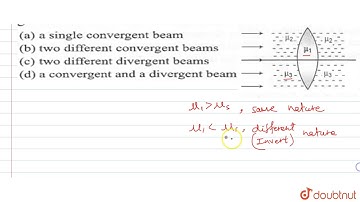 (a) a single convergent beam
(b) two different convergent beams
(c) two different divergent beams
(d) a convergent and a divergent beam
μ₂ μ₁ μ₂
μ₃ μ₃
μ₁ > μₛ, same nature
μ₁ < μₛ, different nature
(Invert)
doubtnut